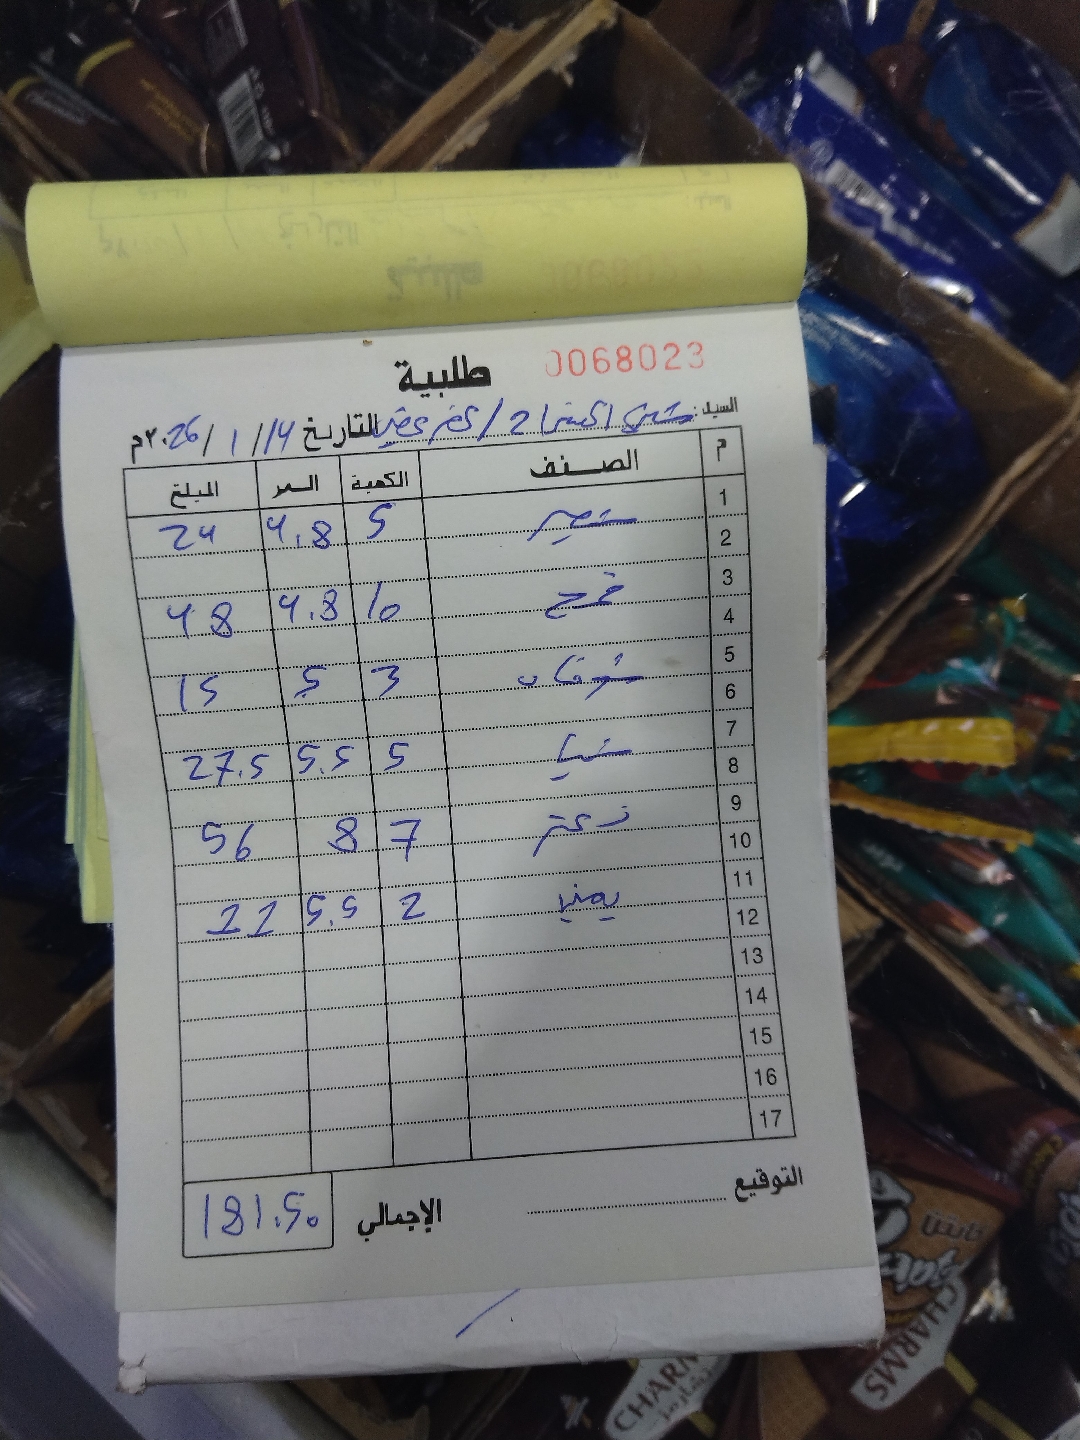 طلبية 0068023
السيد: 2 / التاريخ 14/ 1 /٢٠26م
م الصنف الكمية السعر المبلغ
1 شعير 5 4.8 24
2
3 قمح 10 4.8 48
4
5 شوفان 3 5 15
6
7 5 5.5 27.5
8
9 زعتر 7 8 56
10
11 2 5.5 11
12
13
14
15
16
17
التوقيع
الإجمالي 181.50
CHARMS